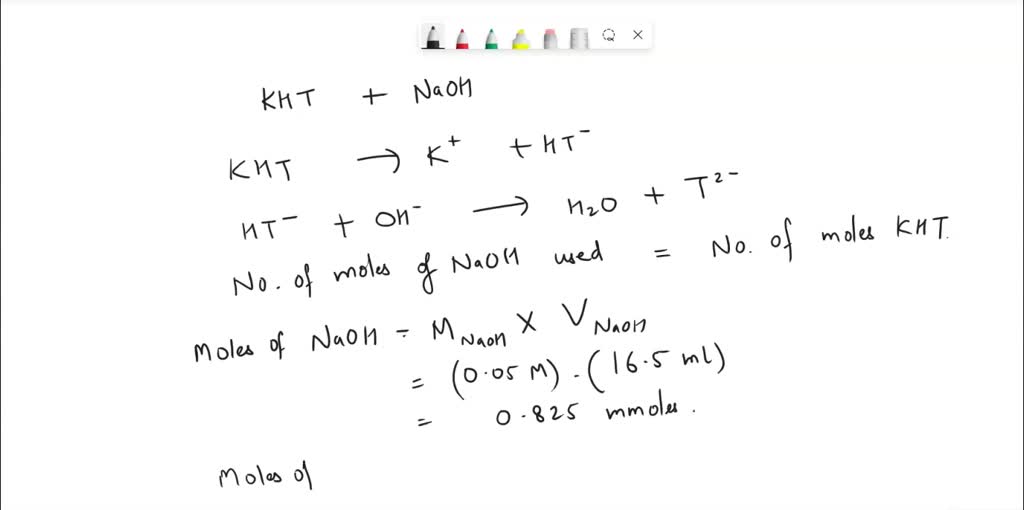 KHT + NaOH
KHT → K⁺ + HT⁻
HT⁻ + OH⁻ → H₂O + T²⁻
No. of moles of NaOH used = No. of moles KHT.
Moles of NaOH = M NaOH X V NaOH
= (0.05 M) . (16.5 ml)
= 0.825 mmoles.
Moles of